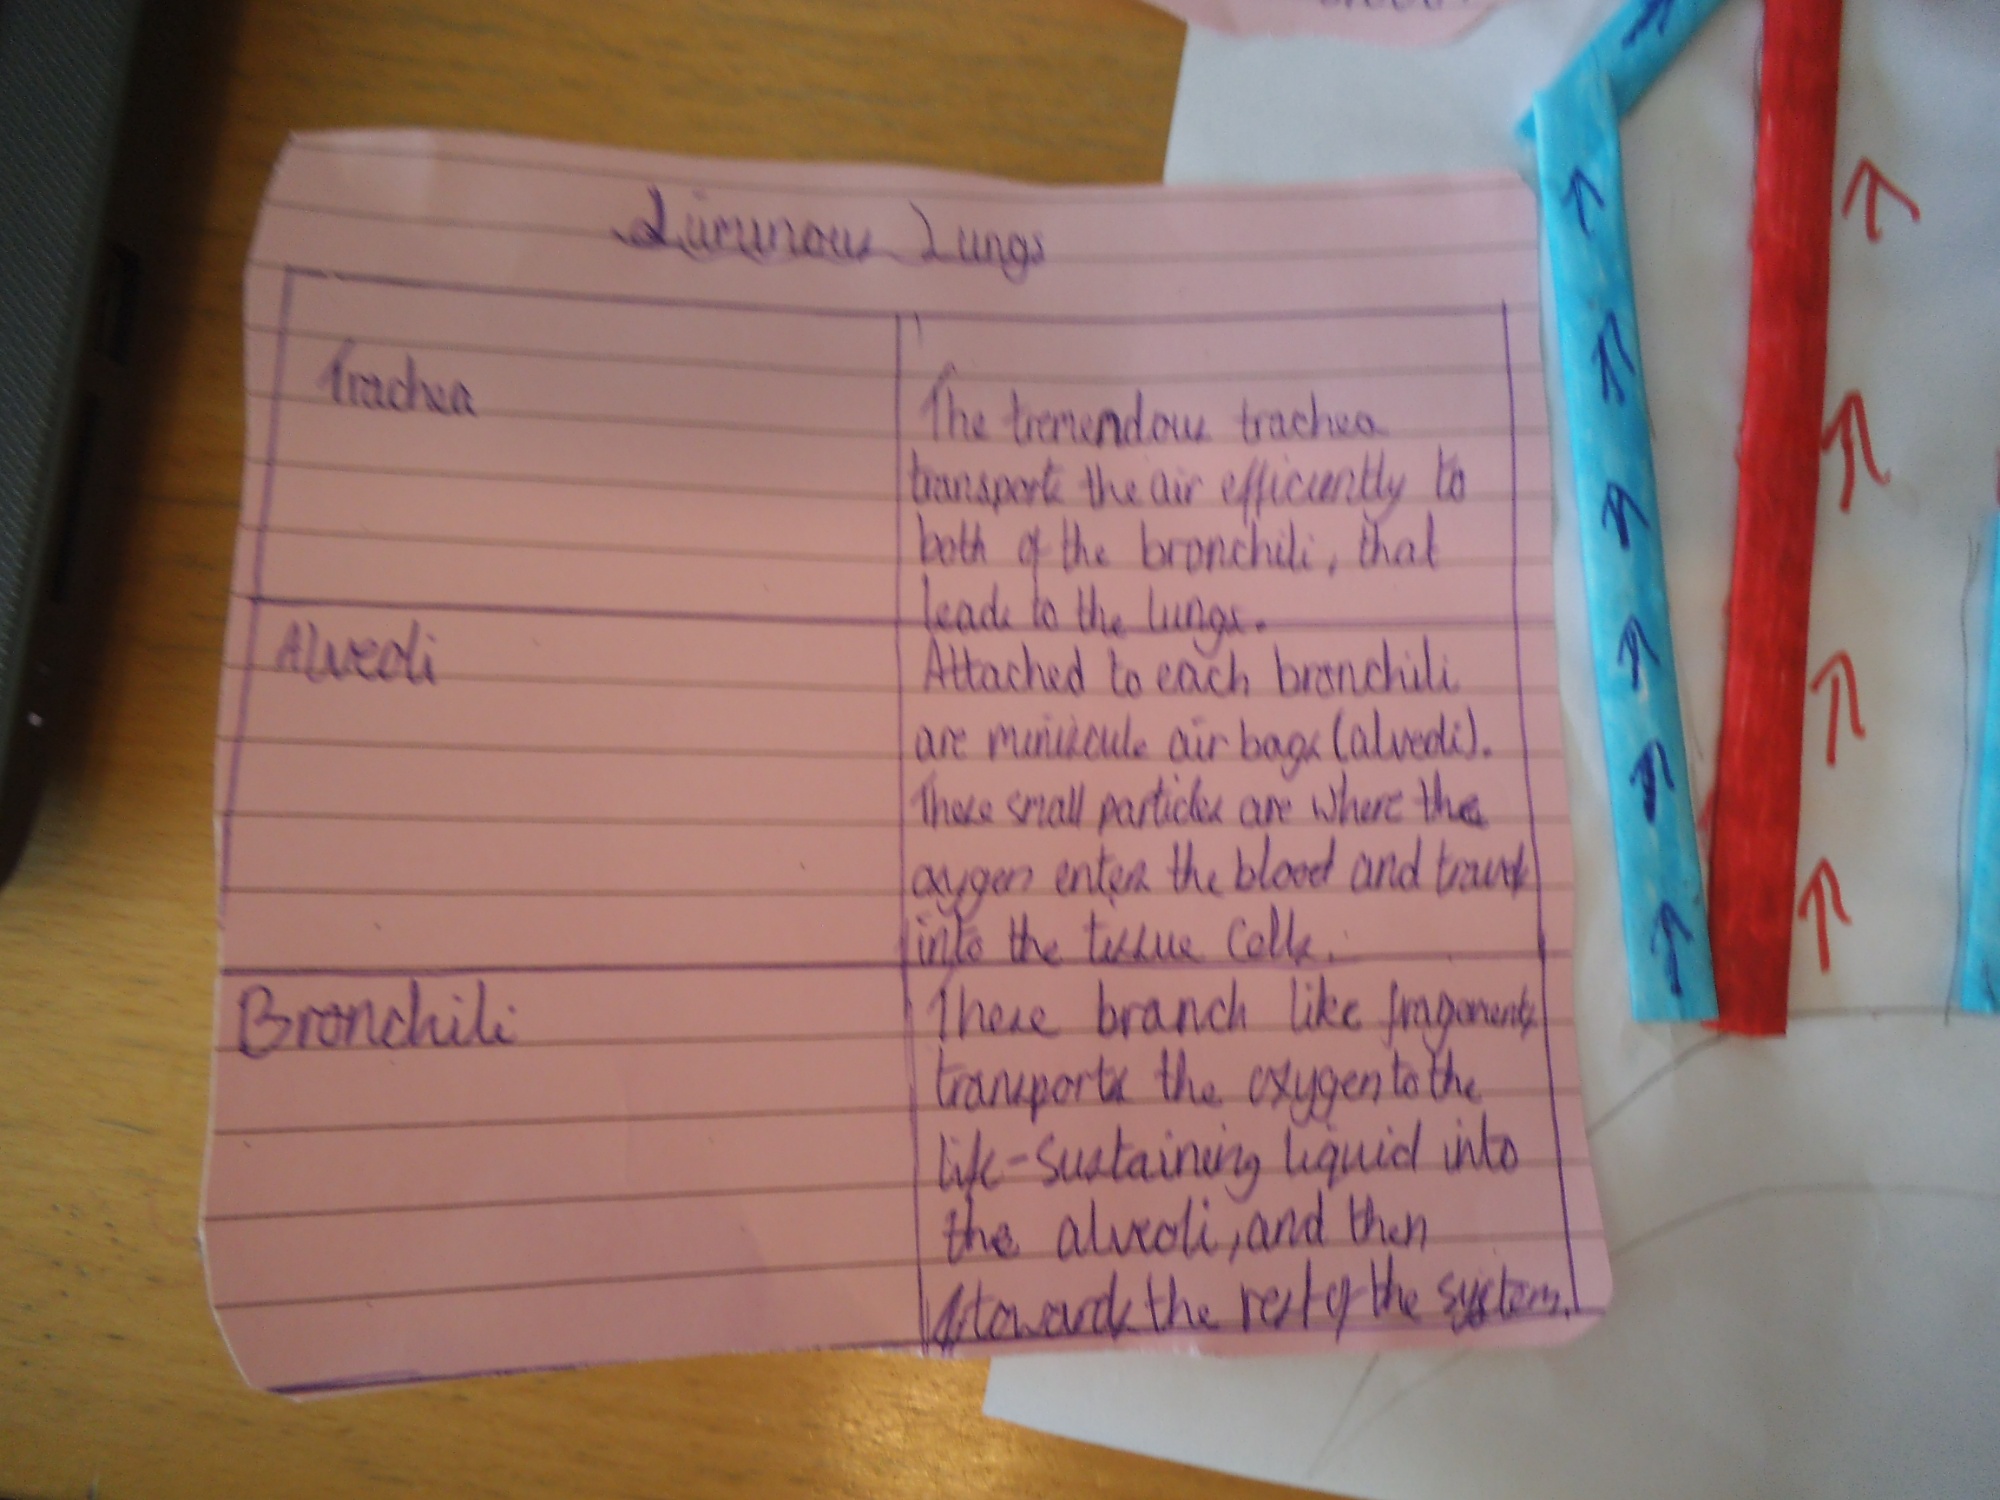 Luminous Lungs
Trachea
The tremendous trachea
transports the air efficiently to
both of the bronchili, that
leads to the lungs.
Alveoli
Attached to each bronchili
are miniscule air bags (alveoli).
These small particles are where the
oxygen enters the blood and travels
into the tissue cells.
Bronchili
These branch like fragments
transports the oxygen to the
life-sustaining liquid into
the alveoli, and then
towards the rest of the system.